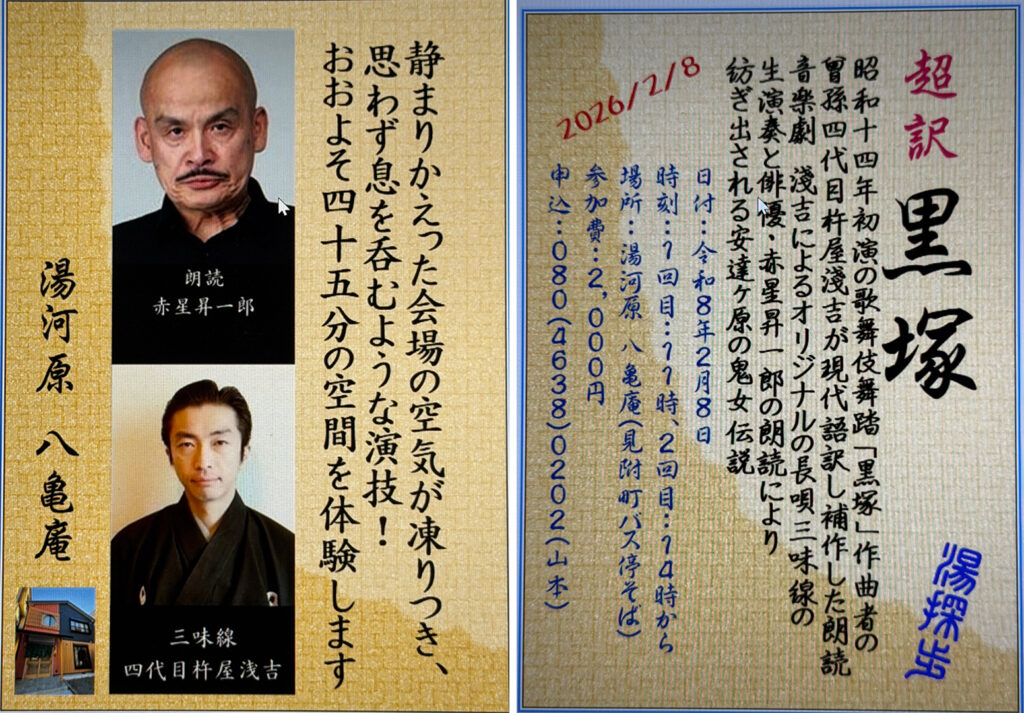 静まりかえった会場の空気が凍りつき、
思わず息を呑むような演技！
おおよそ四十五分の空間を体験します
朗読
赤星昇一郎
三味線
四代目杵屋浅吉
湯河原 八亀庵
超訳 黒塚
湯探歩
昭和十四年初演の歌舞伎舞踏「黒塚」作曲者の
曾孫四代目杵屋淺吉が現代語訳し補作した朗読
音樂劇 淺吉によるオリジナルの長唄三味線の
生演奏と俳優・赤星昇一郎の朗読により
紡ぎ出される安達ヶ原の鬼女伝説
2026/2/8
日付：令和8年2月8日
時刻：1回目：11時、2回目：14時から
場所：湯河原 八亀庵(見附町バス停そば)
参加費：2,000円
申込：080(4638)0202(山本)